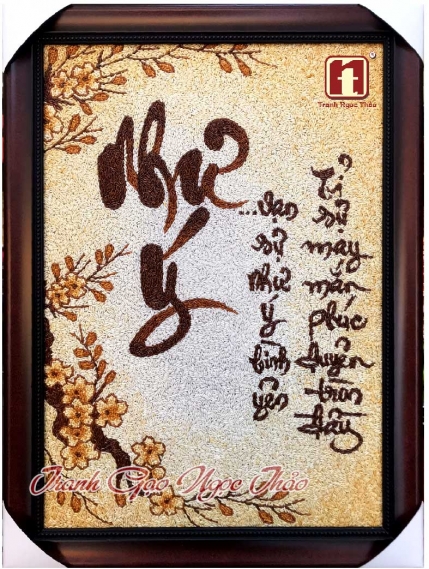 Tranh Ngọc Thảo
Như
Ý
Tỉ sự may mắn phúc duyên tròn đầy
...vạn sự như ý bình yên
Tranh Gạo Ngọc Thảo